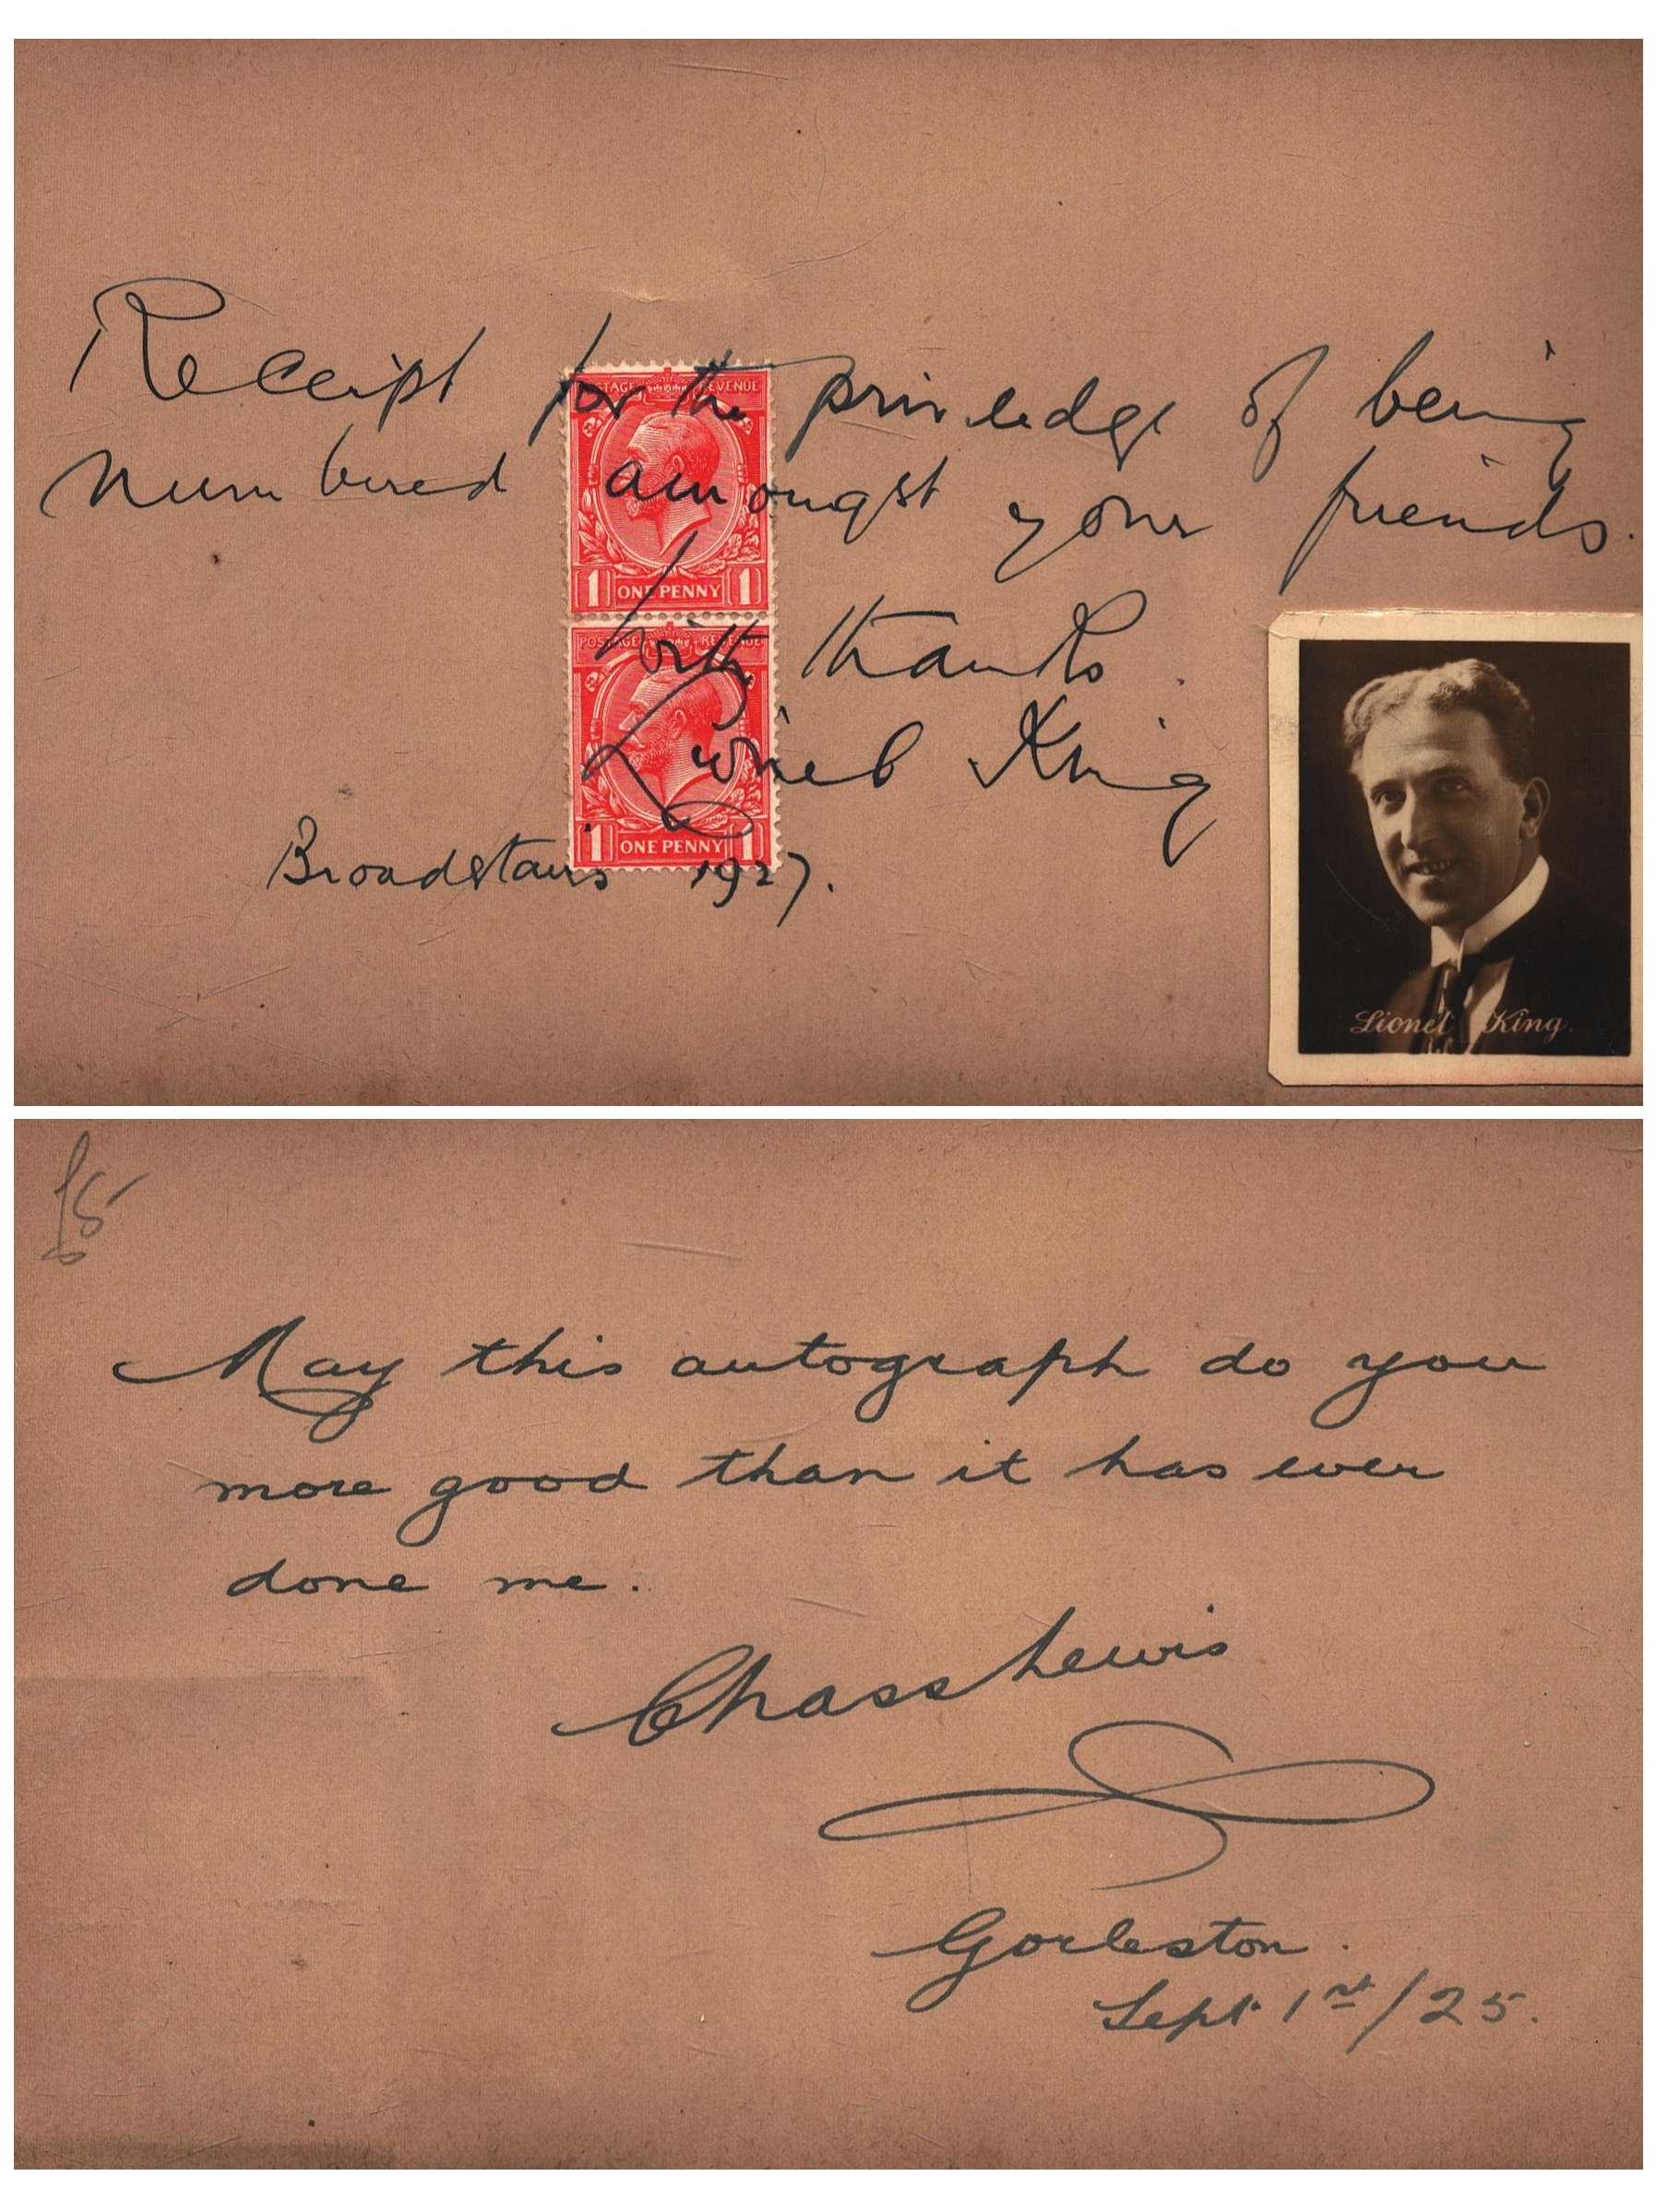 Receipt for the priviledge of being
numbered amongst your friends.
With thanks.
Lionel King
Broadstairs 1927.
POSTAGE REVENUE
1 ONE PENNY 1
POSTAGE REVENUE
1 ONE PENNY 1
Lionel King.
£5
May this autograph do you
more good than it has ever
done me.
Chass Lewis
Gorleston.
Sept 1st/25.